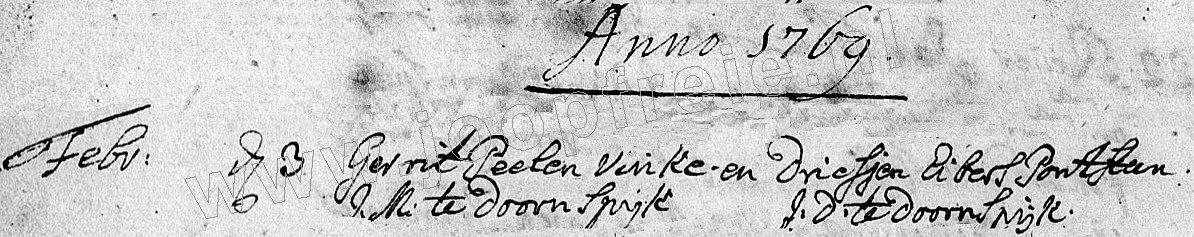 Anno 1769.
Febr: d 3 Gerrit Peelen Vinke en Driesjen Eibers Pontsteen.
J. M. te Doornspijk J. D. te Doornspijk.
www.joopfreie.nl